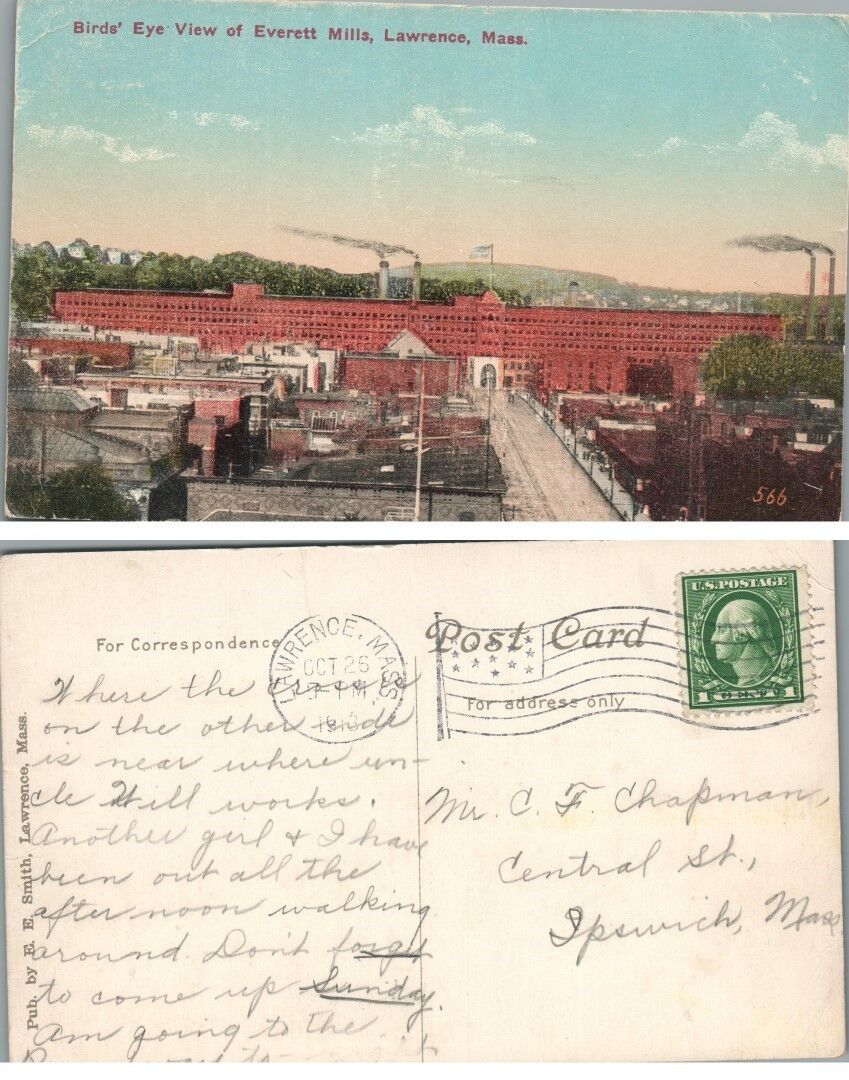 Birds' Eye View of Everett Mills, Lawrence, Mass.
566
For Correspondence
LAWRENCE, MASS.
OCT 26
1913
Post Card
For address only
U.S. POSTAGE
1 CENTS 1
Pub. by E. E. Smith, Lawrence, Mass.
Where the
on the other side
is near where un-
cle Will works.
Another girl & I have
been out all the
after noon walking
around. Don't forget
to come up Sunday.
Am going to the
Mr. C. F. Chapman,
Central St.,
Ipswich, Mass.